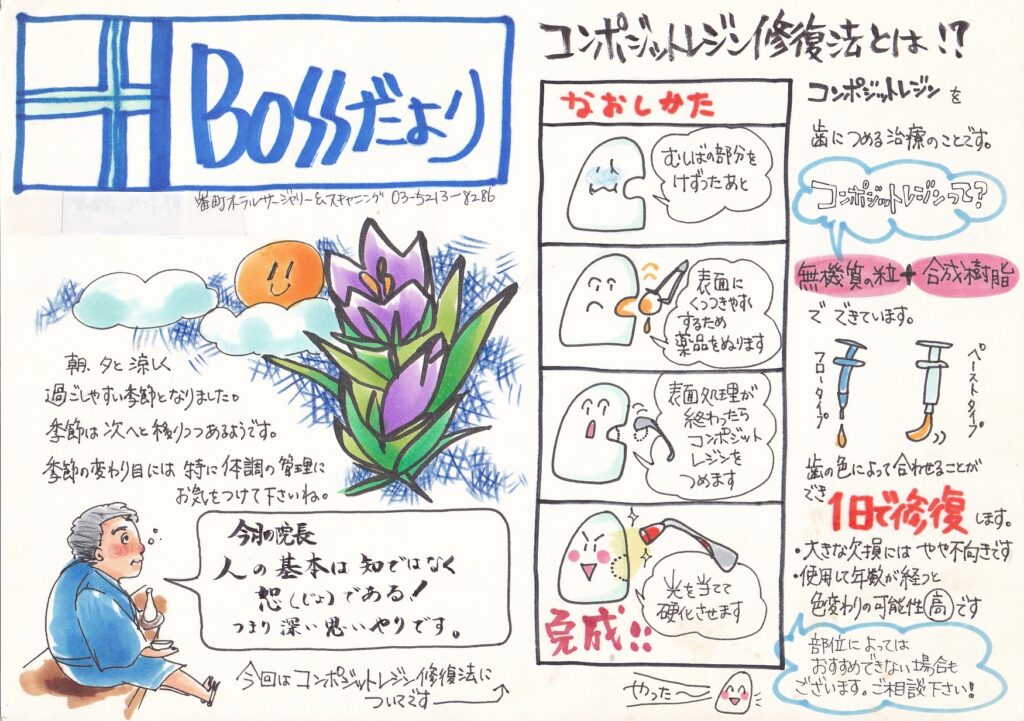 BOSSだより
番町オーラルサージャリー&スキャニング 03-5213-8286
朝、夕と涼しく
過ごしやすい季節となりました。
季節は次へと移りつつあるようです。
季節の変わり目には特に体調の管理に
お気をつけて下さいね。
今月の院長
人の基本は知ではなく
恕(じょ)である!
つまり深い思いやりです。
今回はコンポジットレジン修復法に
ついてです
コンポジットレジン修復法とは!?
なおしかた
むしばの部分を
けずったあと
表面に
くっつきやすく
するため
薬品をぬります
表面処理が
終わったら
コンポジット
レジンを
つめます
光を当てて
硬化させます
完成!!
やったー
コンポジットレジンを
歯につめる治療のことです。
コンポジットレジンって?
無機質の粒+合成樹脂
でできています。
フロータイプ
ペーストタイプ
歯の色によって合わせることが
でき
1日で修復します。
・大きな欠損にはやや不向きです
・使用して年数が経つと
色変わりの可能性高です
部位によっては
おすすめできない場合も
ございます。ご相談下さい!